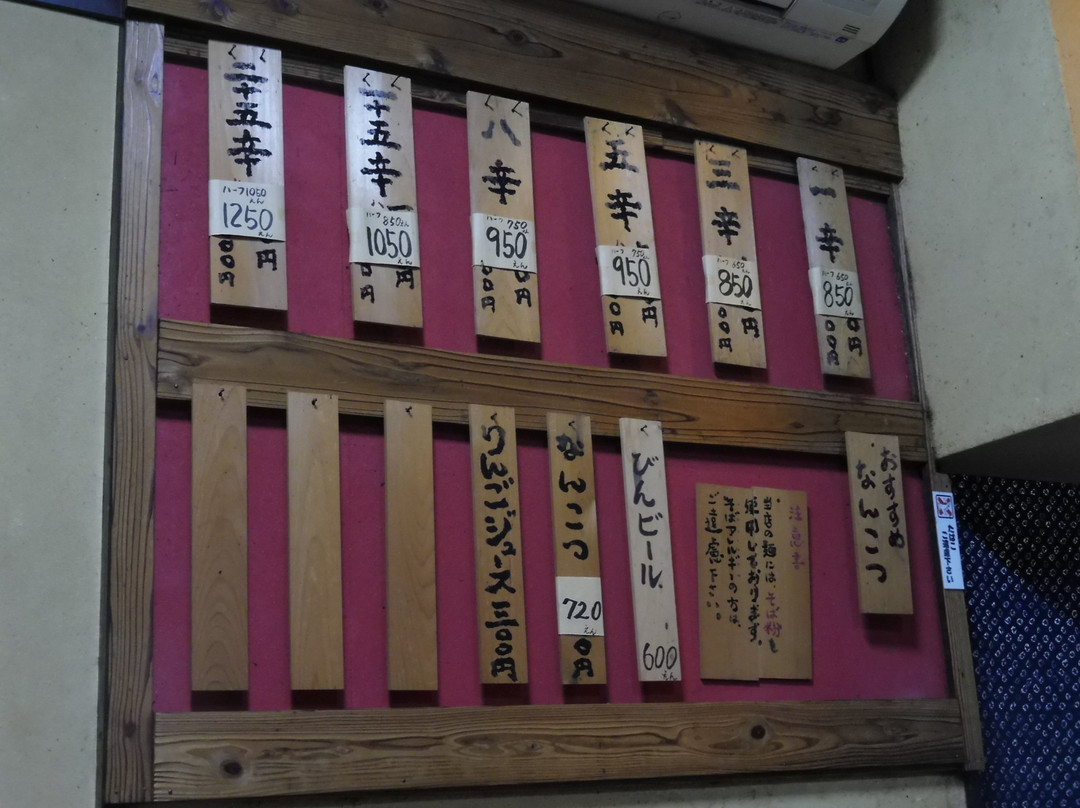 一辛
ハーフ650
850えん
00円
0円
三辛
ハーフ650
850えん
00円
円
五辛
ハーフ750
950えん
00円
円
八辛
ハーフ750
950えん
00円
0円
一十五辛
ハーフ850えん
1050えん
0円
円
二十五辛
ハーフ1050えん
1250えん
00円
円
おすすめ
なんこつ
注意書
当店の麺には、そば粉を
使用しております。
そばアレルギーの方は、
ご遠慮下さい。
びんビール
600えん
なんこつ
720えん
0円
りんごジュース三〇〇円